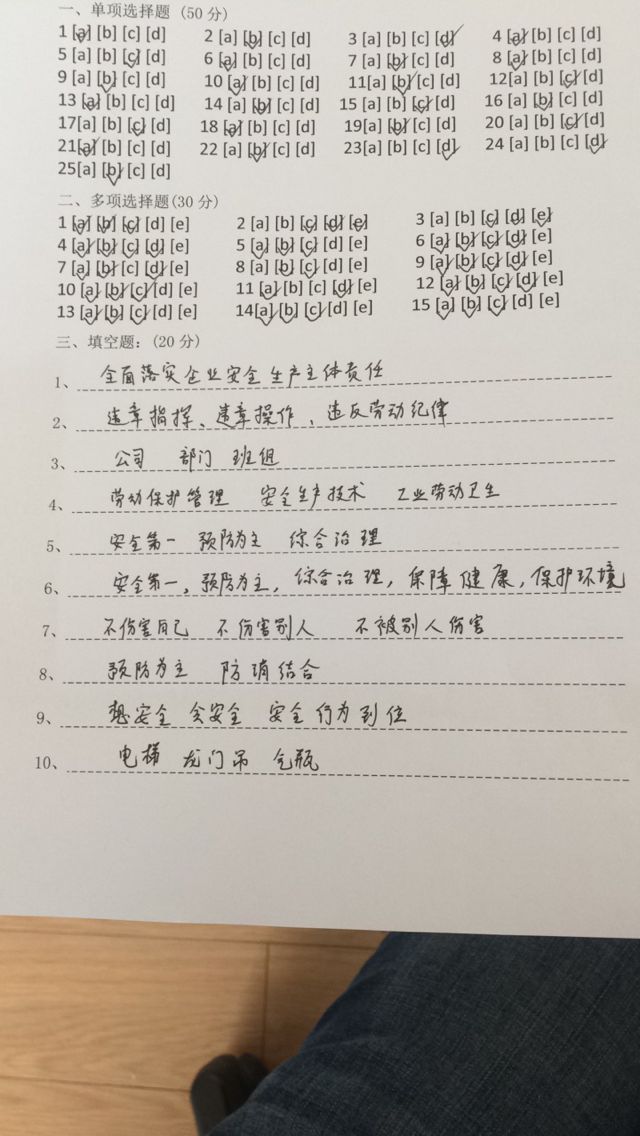 一、单项选择题 (50 分)
1 [a] [b] [c] [d] 2 [a] [b] [c] [d] 3 [a] [b] [c] [d] 4 [a] [b] [c] [d]
5 [a] [b] [c] [d] 6 [a] [b] [c] [d] 7 [a] [b] [c] [d] 8 [a] [b] [c] [d]
9 [a] [b] [c] [d] 10 [a] [b] [c] [d] 11[a] [b] [c] [d] 12[a] [b] [c] [d]
13 [a] [b] [c] [d] 14 [a] [b] [c] [d] 15 [a] [b] [c] [d] 16 [a] [b] [c] [d]
17[a] [b] [c] [d] 18 [a] [b] [c] [d] 19[a] [b] [c] [d] 20 [a] [b] [c] [d]
21[a] [b] [c] [d] 22 [a] [b] [c] [d] 23[a] [b] [c] [d] 24 [a] [b] [c] [d]
25[a] [b] [c] [d]
二、多项选择题(30 分)
1 [a] [b] [c] [d] [e] 2 [a] [b] [c] [d] [e] 3 [a] [b] [c] [d] [e]
4 [a] [b] [c] [d] [e] 5 [a] [b] [c] [d] [e] 6 [a] [b] [c] [d] [e]
7 [a] [b] [c] [d] [e] 8 [a] [b] [c] [d] [e] 9 [a] [b] [c] [d] [e]
10 [a] [b] [c] [d] [e] 11 [a] [b] [c] [d] [e] 12 [a] [b] [c] [d] [e]
13 [a] [b] [c] [d] [e] 14[a] [b] [c] [d] [e] 15 [a] [b] [c] [d] [e]
三、填空题：(20 分)
1、全面落实企业安全生产主体责任
2、违章指挥、违章操作、违反劳动纪律
3、公司 部门 班组
4、劳动保护管理 安全生产技术 工业劳动卫生
5、安全第一 预防为主 综合治理
6、安全第一，预防为主，综合治理，保障健康，保护环境
7、不伤害自己 不伤害别人 不被别人伤害
8、预防为主 防消结合
9、想安全 会安全 安全行为到位
10、电梯 龙门吊 气瓶